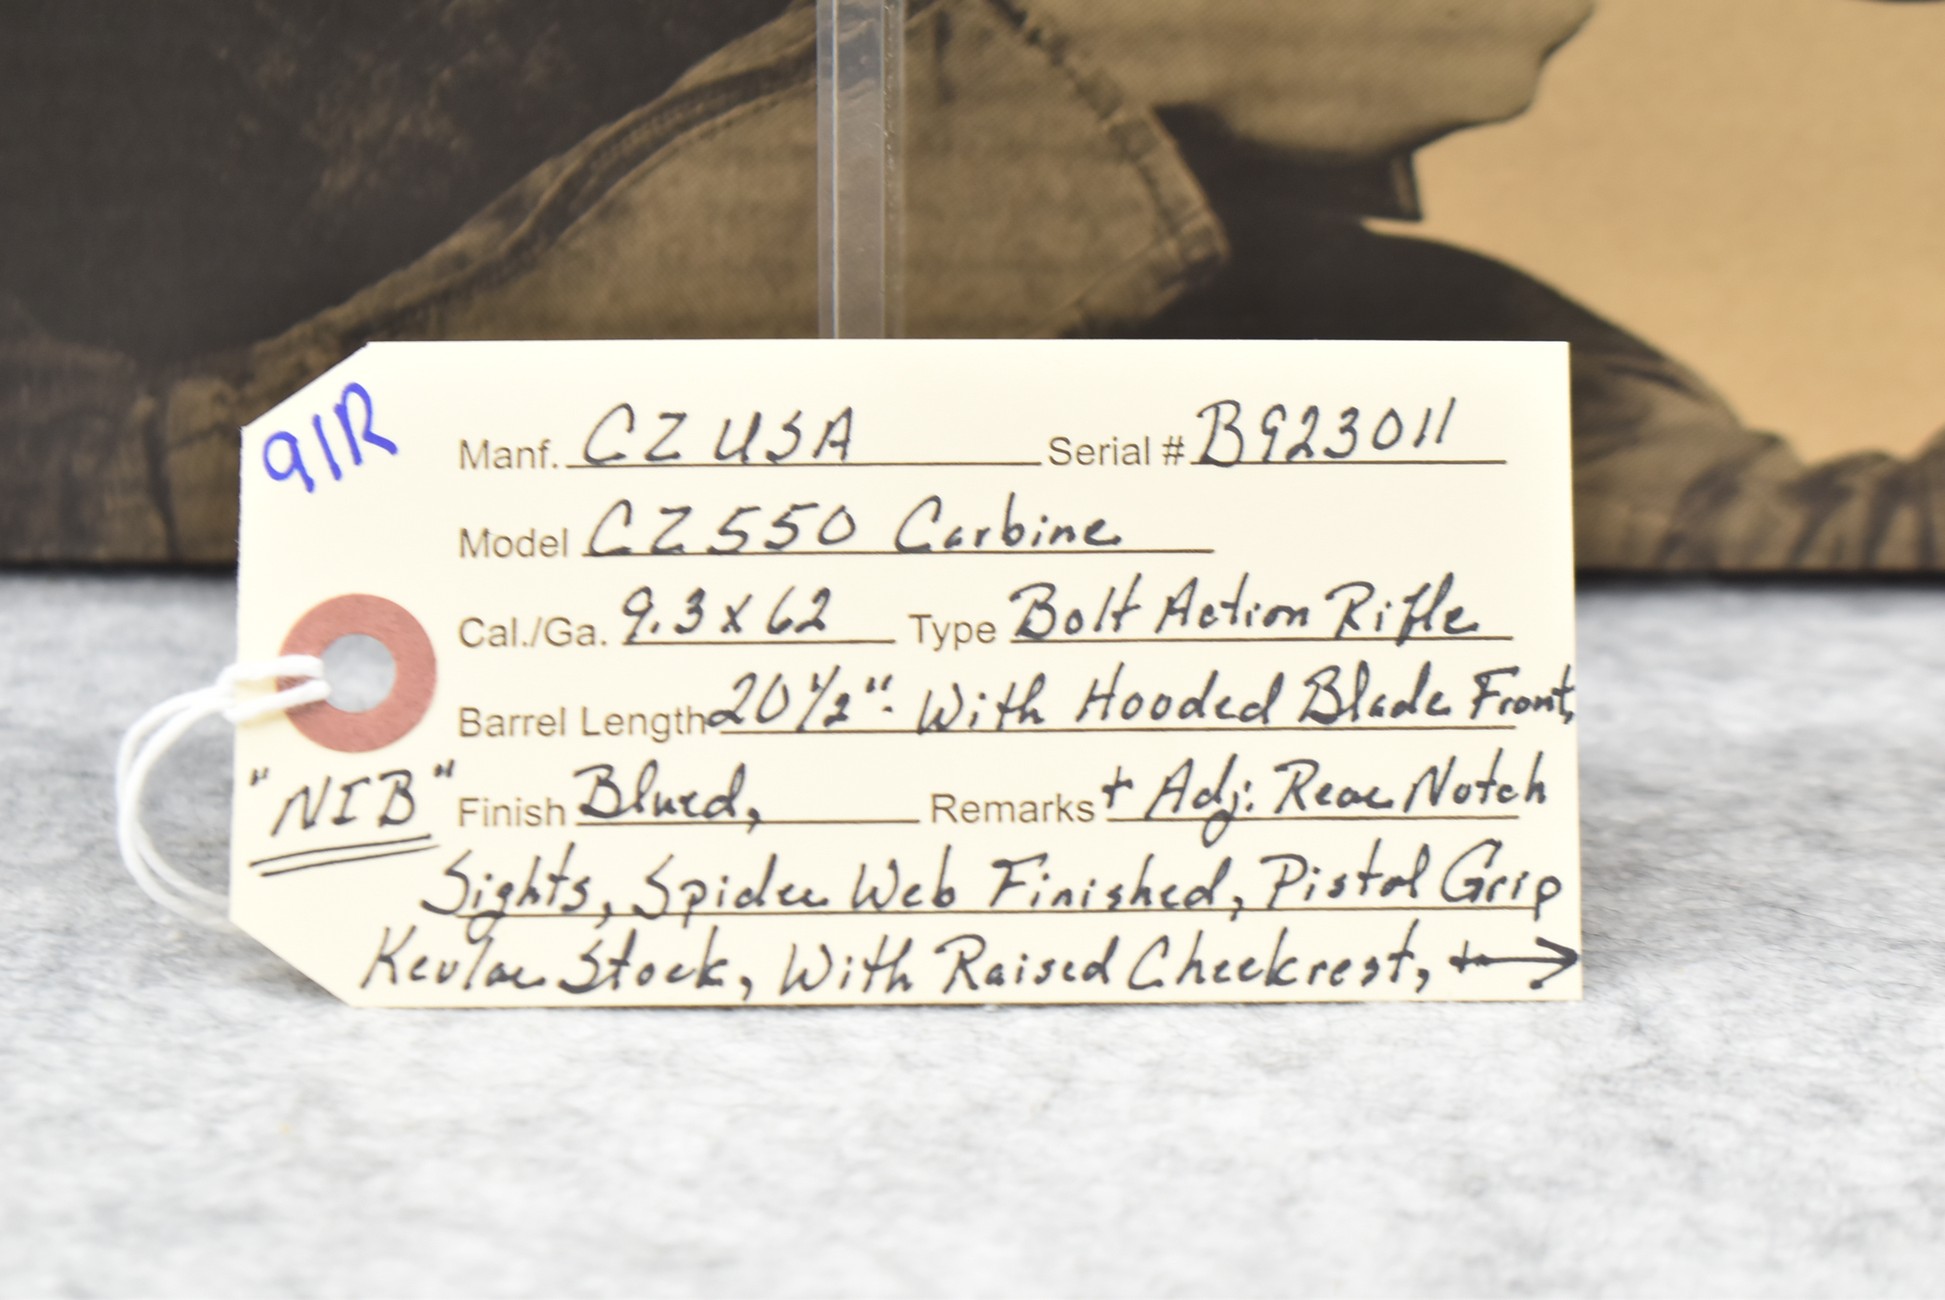 91R
Manf. CZ USA Serial # B923011
Model CZ 550 Carbine
Cal./Ga. 9.3 x 62 Type Bolt Action Rifle
Barrel Length 20 1/2" With Hooded Blade Front,
"NIB" Finish Blued, Remarks + Adj. Rear Notch
Sights, Spider Web Finished, Pistol Grip
Kevlar Stock, With Raised Cheekrest, +→